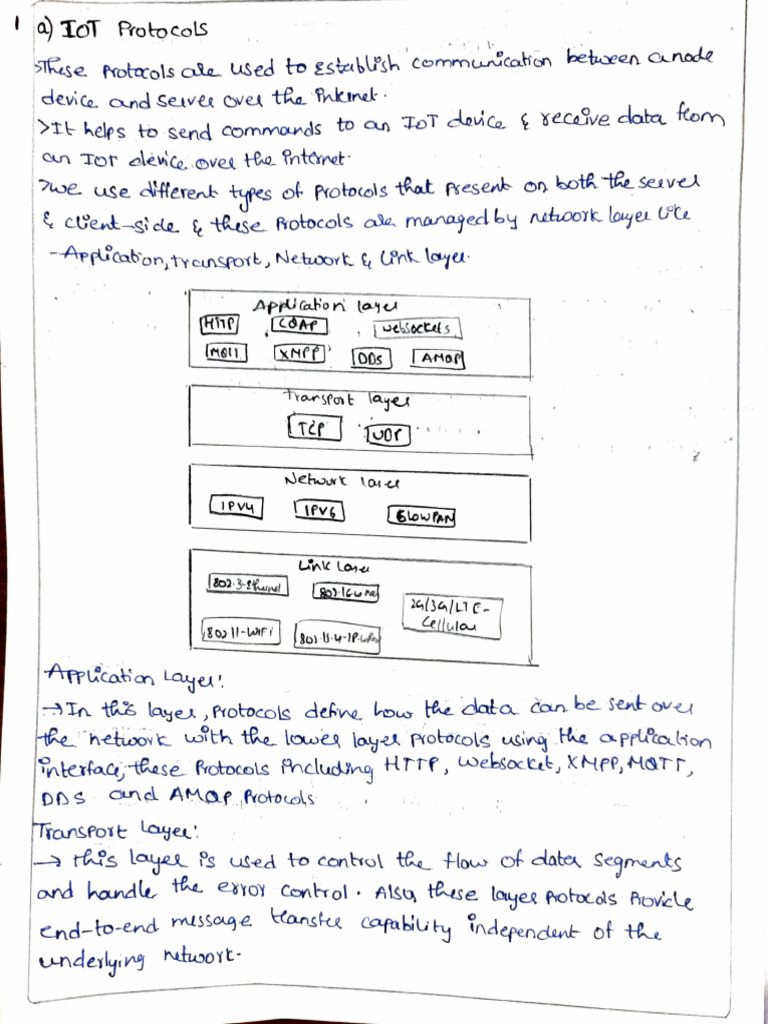 1 a) IOT Protocols
>These Protocols are used to Establish communication between a node
device and server over the internet.
>It helps to send commands to an IoT device & receive data from
an IoT device over the internet.
>we use different types of Protocols that present on both the server
& client-side & these Protocols are managed by network layer like
-Application, transport, Network & link layer.
Application layer
HTTP COAP websockets
MQTT XMPP DDS AMQP
Transport layer
TCP UDP
Network layer
IPV4 IPV6 6LOWPAN
Link Layer
802.3-Ethernet 802.16
2G/3G/LTE-
Cellular
802.11-WiFi
Application Layer:
→In this layer, protocols define how the data can be sent over
the network with the lower layer protocols using the application
interface, these Protocols including HTTP, Websocket, XMPP, MQTT,
DDS and AMQP Protocols
Transport Layer:
→ this layer is used to control the flow of data segments
and handle the error control. Also, these layer Protocols Provide
end-to-end message transfer capability independent of the
underlying network.